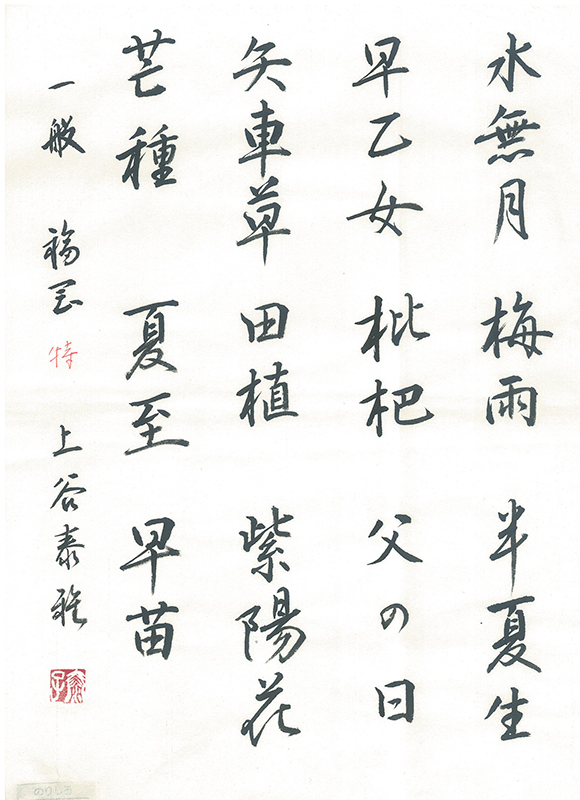 水無月 梅雨 半夏生
早乙女 枇杷 父の日
矢車草 田植 紫陽花
芒種 夏至 早苗
一般 福岡 特 上谷泰雅
のりしろ